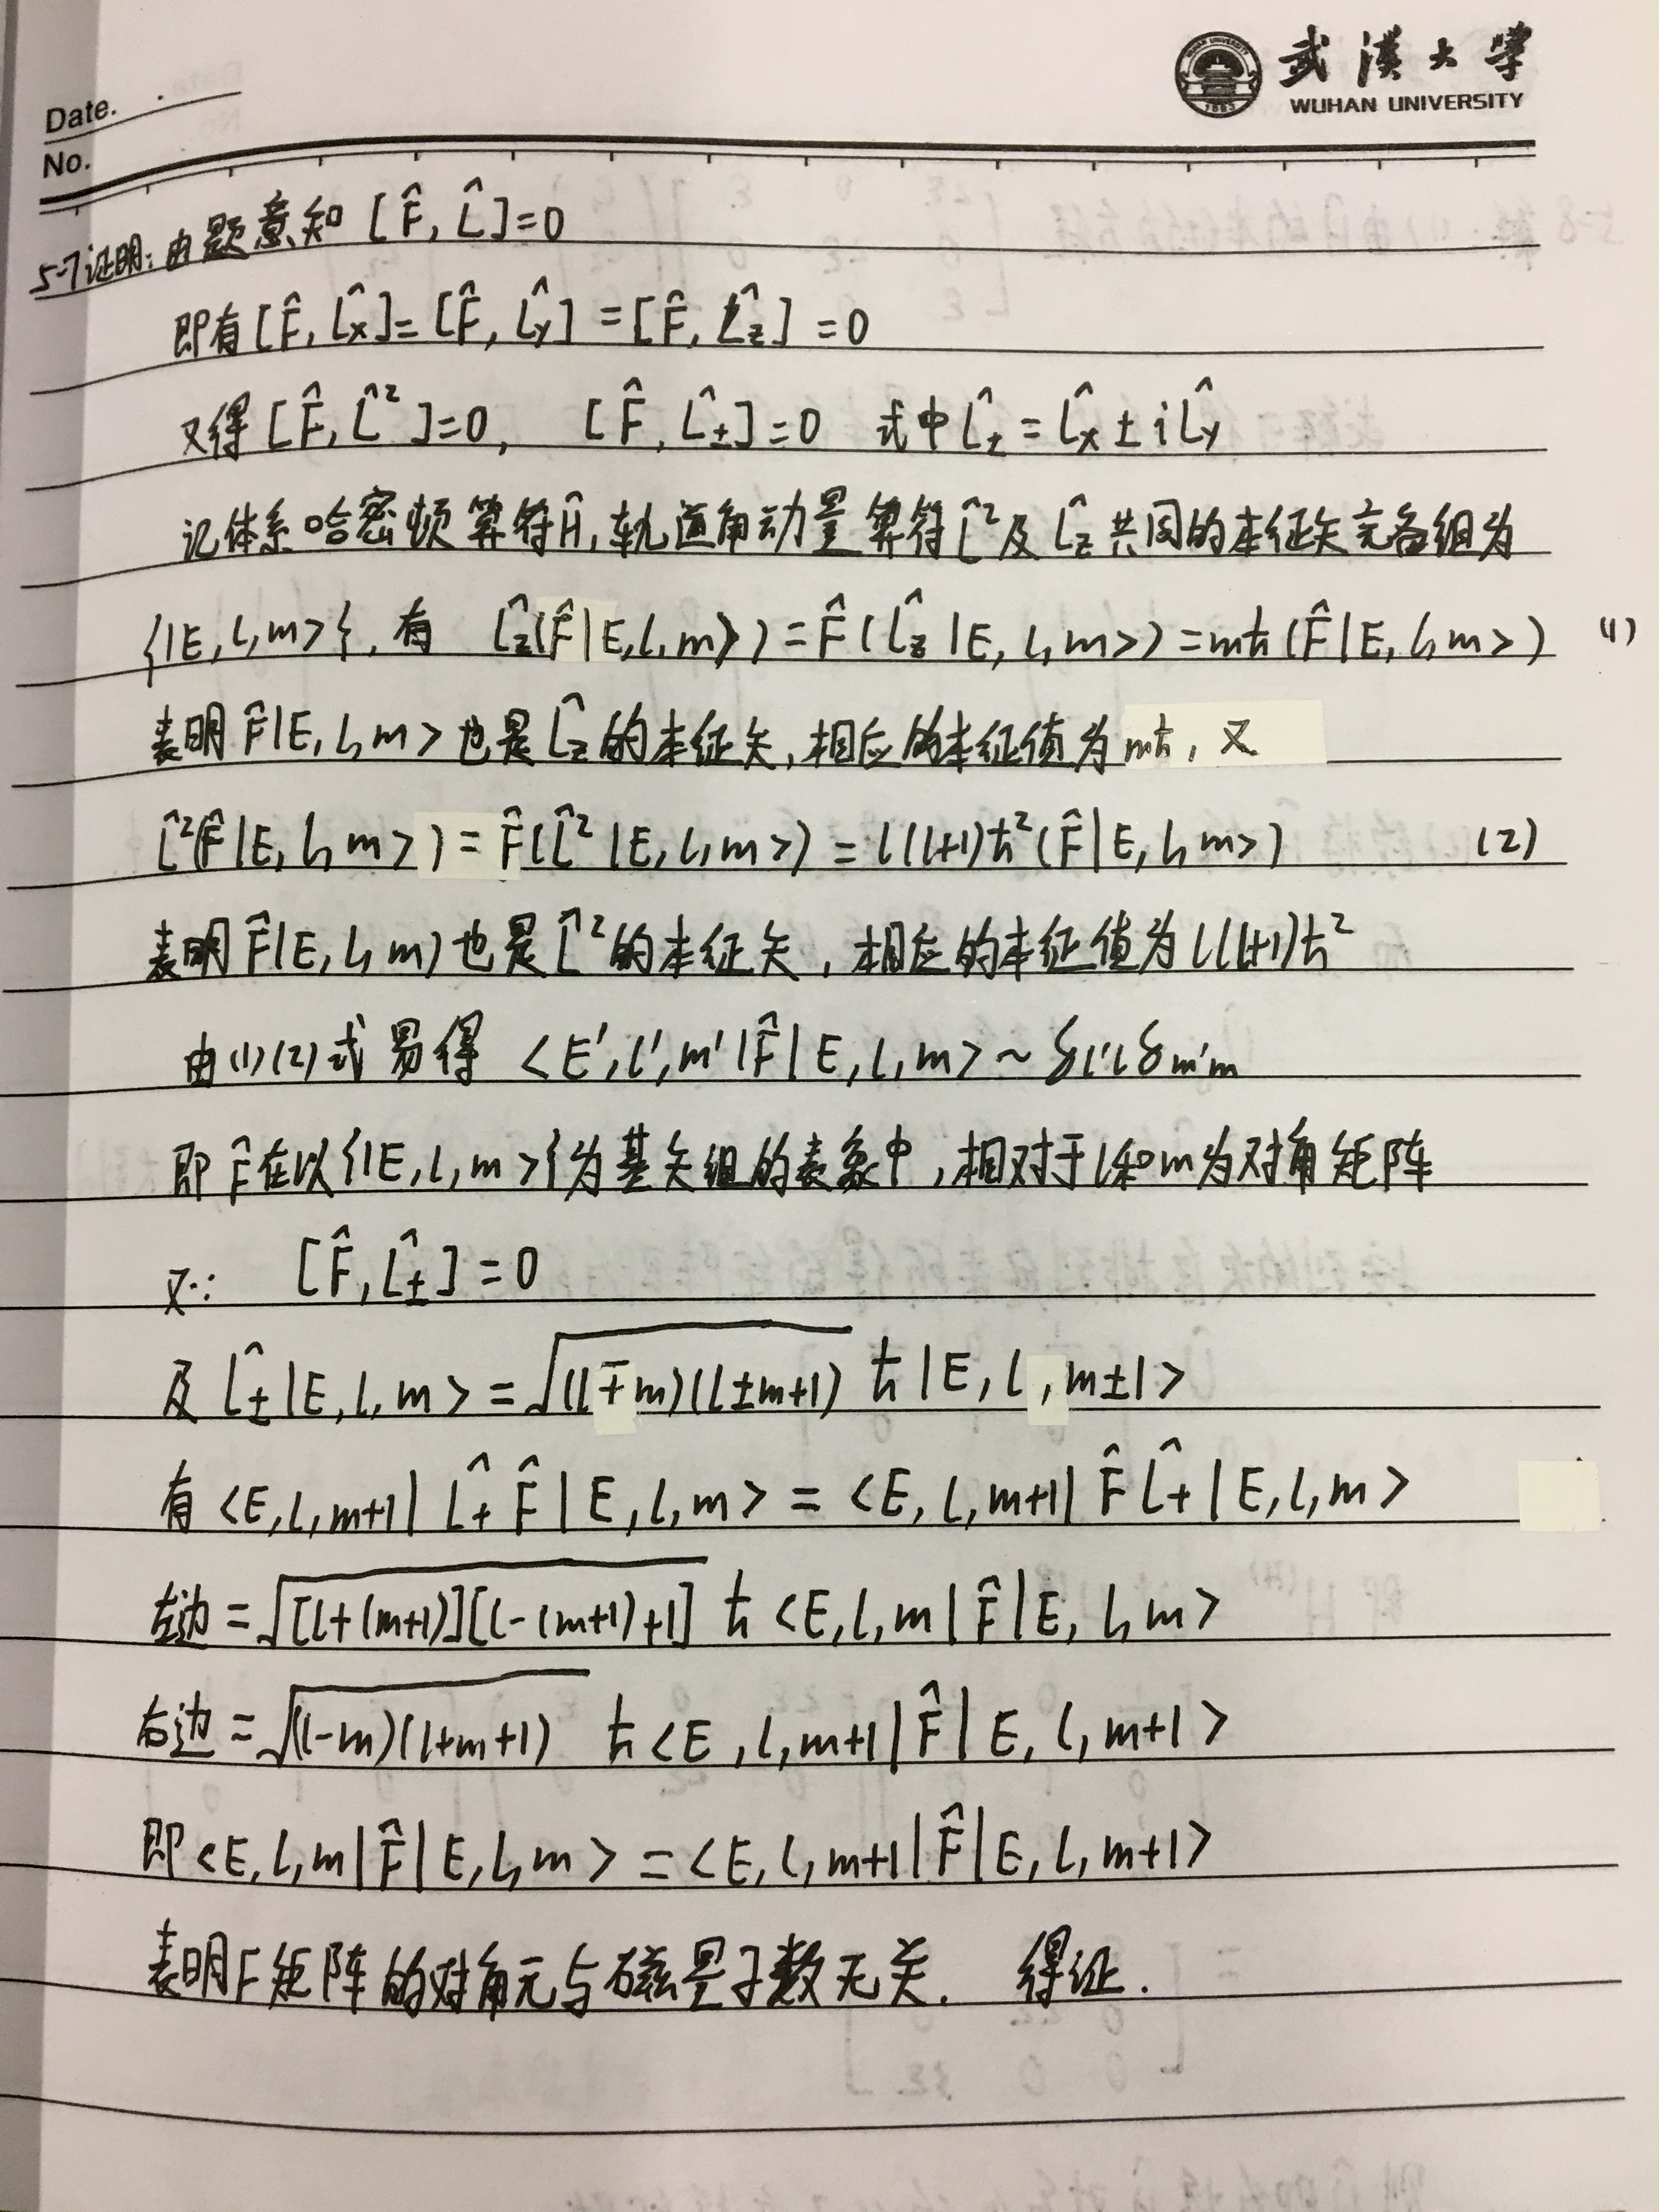 武漢大學
WUHAN UNIVERSITY
Date.
No.
5-7证明: 由题意知 [F̂, L̂]=0
即有[F̂, L̂x]=[F̂, L̂y]=[F̂, L̂z]=0
又得[F̂, L̂²]=0, [F̂, L̂±]=0 式中L̂± = L̂x ± iL̂y
记体系哈密顿算符Ĥ, 轨道角动量算符L̂²及L̂z共同的本征矢完备组为
{|E, l, m>}, 有 L̂z(F̂|E, l, m>) = F̂(L̂z|E, l, m>) = mħ(F̂|E, l, m>) (1)
表明F̂|E, l, m>也是L̂z的本征矢, 相应的本征值为mħ, 又
L̂²(F̂|E, l, m>) = F̂(L̂²|E, l, m>) = l(l+1)ħ²(F̂|E, l, m>) (2)
表明F̂|E, l, m)也是L̂²的本征矢, 相应的本征值为l(l+1)ħ²
由(1)(2)式易得 <E', l', m'|F̂|E, l, m> ~ δl'lδm'm
即F̂在以{|E, l, m>}为基矢组的表象中, 相对于l和m为对角矩阵
又∵ [F̂, L̂±]=0
及L̂±|E, l, m> = √(l∓m)(l±m+1) ħ|E, l, m±1>
有<E, l, m+1|L̂+F̂|E, l, m> = <E, l, m+1|F̂L̂+|E, l, m>
左边=√[l+(m+1)][l-(m+1)+1] ħ<E, l, m|F̂|E, l, m>
右边=√(l-m)(l+m+1) ħ<E, l, m+1|F̂|E, l, m+1>
即<E, l, m|F̂|E, l, m> = <E, l, m+1|F̂|E, l, m+1>
表明F矩阵的对角元与磁量子数无关. 得证.